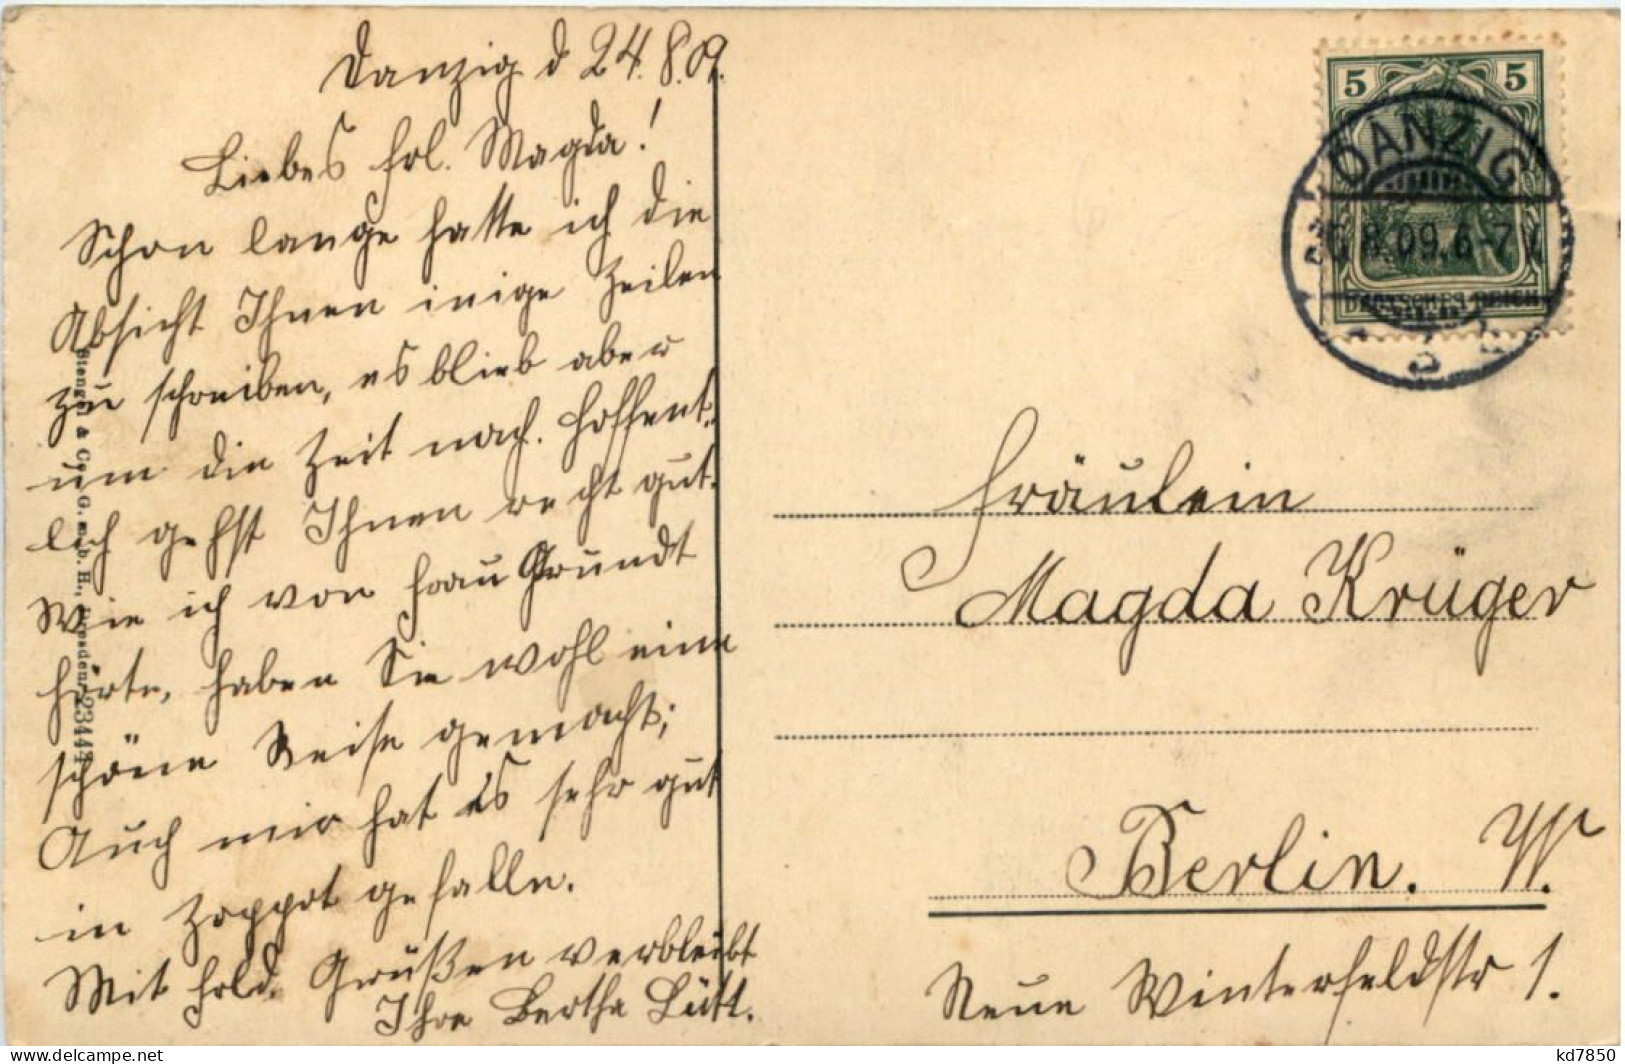 Danzig d 24.8.09.
Liebes Frl. Magda!
Schon lange hatte ich die
Absicht Ihnen einige Zeilen
zu schreiben, es blieb aber
um die Zeit nach. Hoffent-
lich gehst Ihnen recht gut.
Wie ich von Frau Grundt
hörte, haben Sie wohl eine
schöne Reise gemacht;
Auch mir hat es sehr gut
in Zoppot gefallen.
Mit frdl. Grüßen verbleibt
Ihre Bertha Lütt.
Stengel & Co., G. m. b. H., Dresden
5 5
DANZIG
8.09.6-7
DEUTSCHES REICH
Fräulein
Magda Krüger
Berlin. W.
Neue Winterfeldstr 1.
kd7850